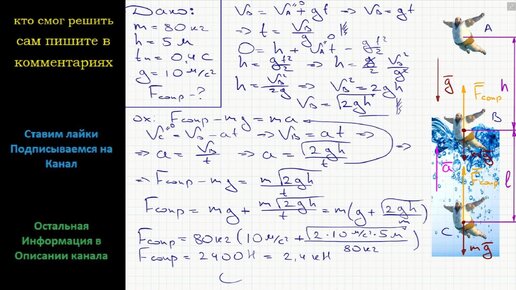 кто смог решить
сам пишите в
комментариях
Ставим лайки
Подписываемся на
Канал
Остальная
Информация в
Описании канала
Дано:
m = 80 кг
h = 5 м
tₙ = 0,4 с
g = 10 м/с²
Fсопр - ?
V_B = V_A + gt ⇒ V_B = gt
⇒ t = V_B/g
0 = h + V_A t - gt²/2
h = gt²/2 ⇒ h = g/2 V_B²/g²
h = V_B²/2g ⇒ V_B² = 2gh
V_B = √2gh
ox: Fсопр - mg = ma
V_C = V_B - at ⇒ V_B = at ⇒
⇒ a = V_B/t ⇒ a = √2gh/t
⇒ Fсопр - mg = m√2gh/t
Fсопр = mg + m√2gh/t = m(g + √2gh/t)
Fсопр = 80 кг (10 м/с² + √2·10 м/с²·5 м/80 кг)
Fсопр = 2400 Н = 2,4 кН
A
g
Fсопр
h
B
mg
a
Fсопр
l
C
mg